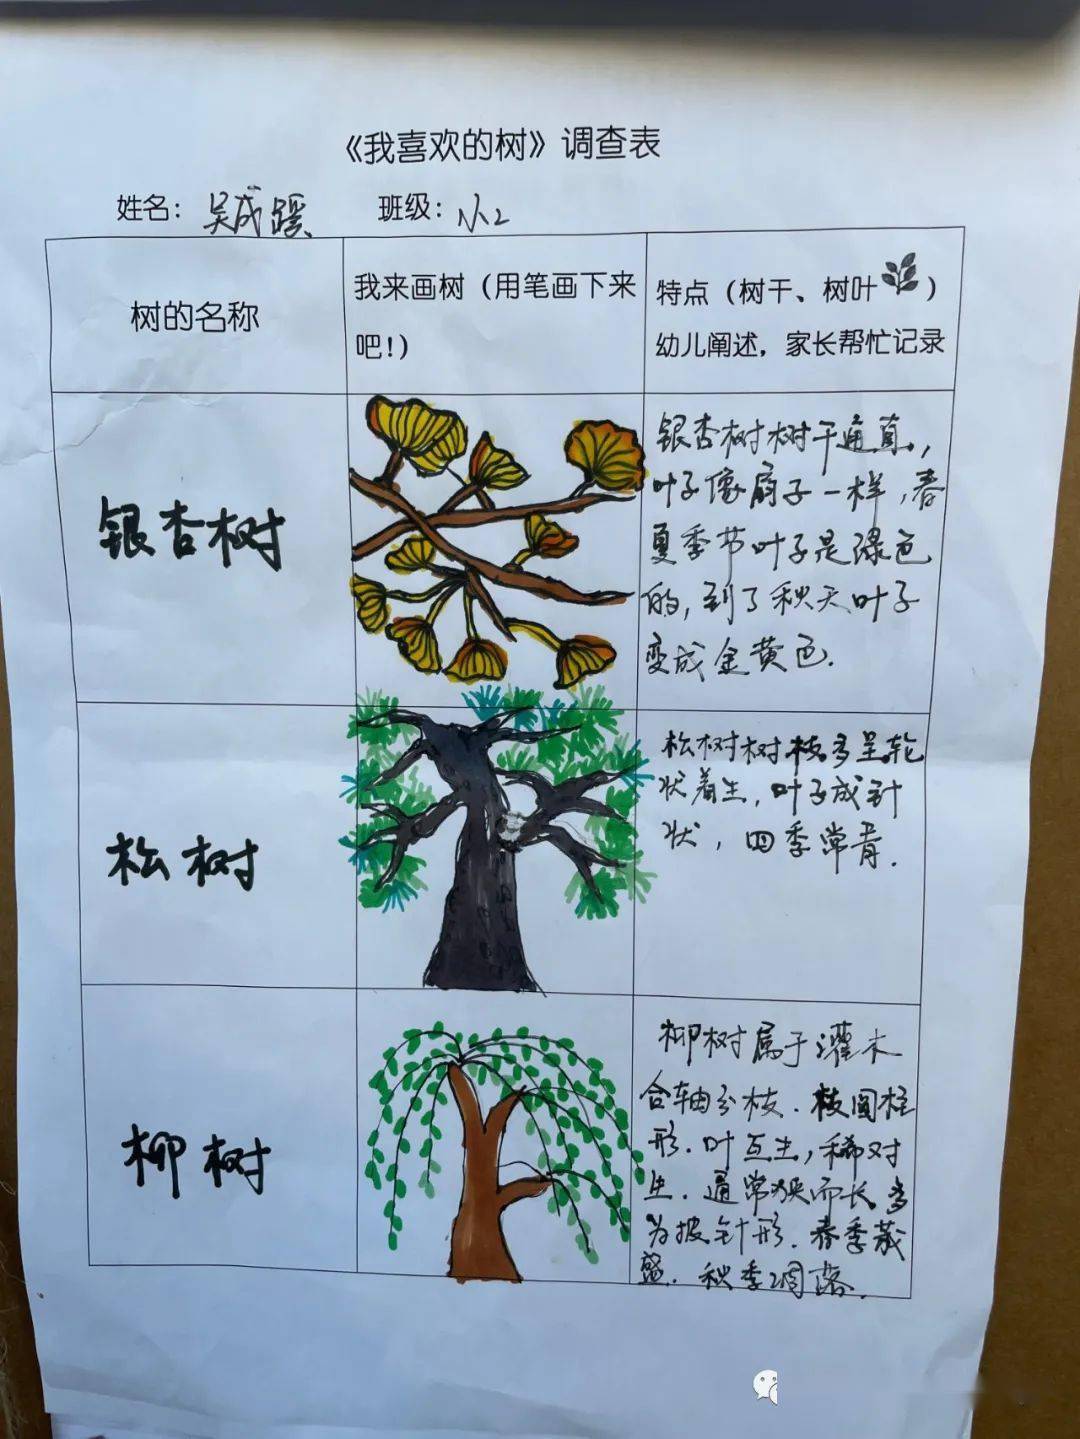 《我喜欢的树》调查表
姓名：吴成蹊 班级：小2
树的名称
我来画树（用笔画下来
吧！）
特点（树干、树叶）
幼儿阐述，家长帮忙记录
银杏树
银杏树树干通直，
叶子像扇子一样，春
夏季节叶子是绿色
的，到了秋天叶子
变成金黄色.
松树
松树树枝多呈轮
状着生，叶子成针
状，四季常青.
柳树
柳树属于灌木
合轴分枝.枝圆柱
形.叶互生，稀对
生.通常狭而长，多
为披针形.春季茂
盛.秋季凋落.